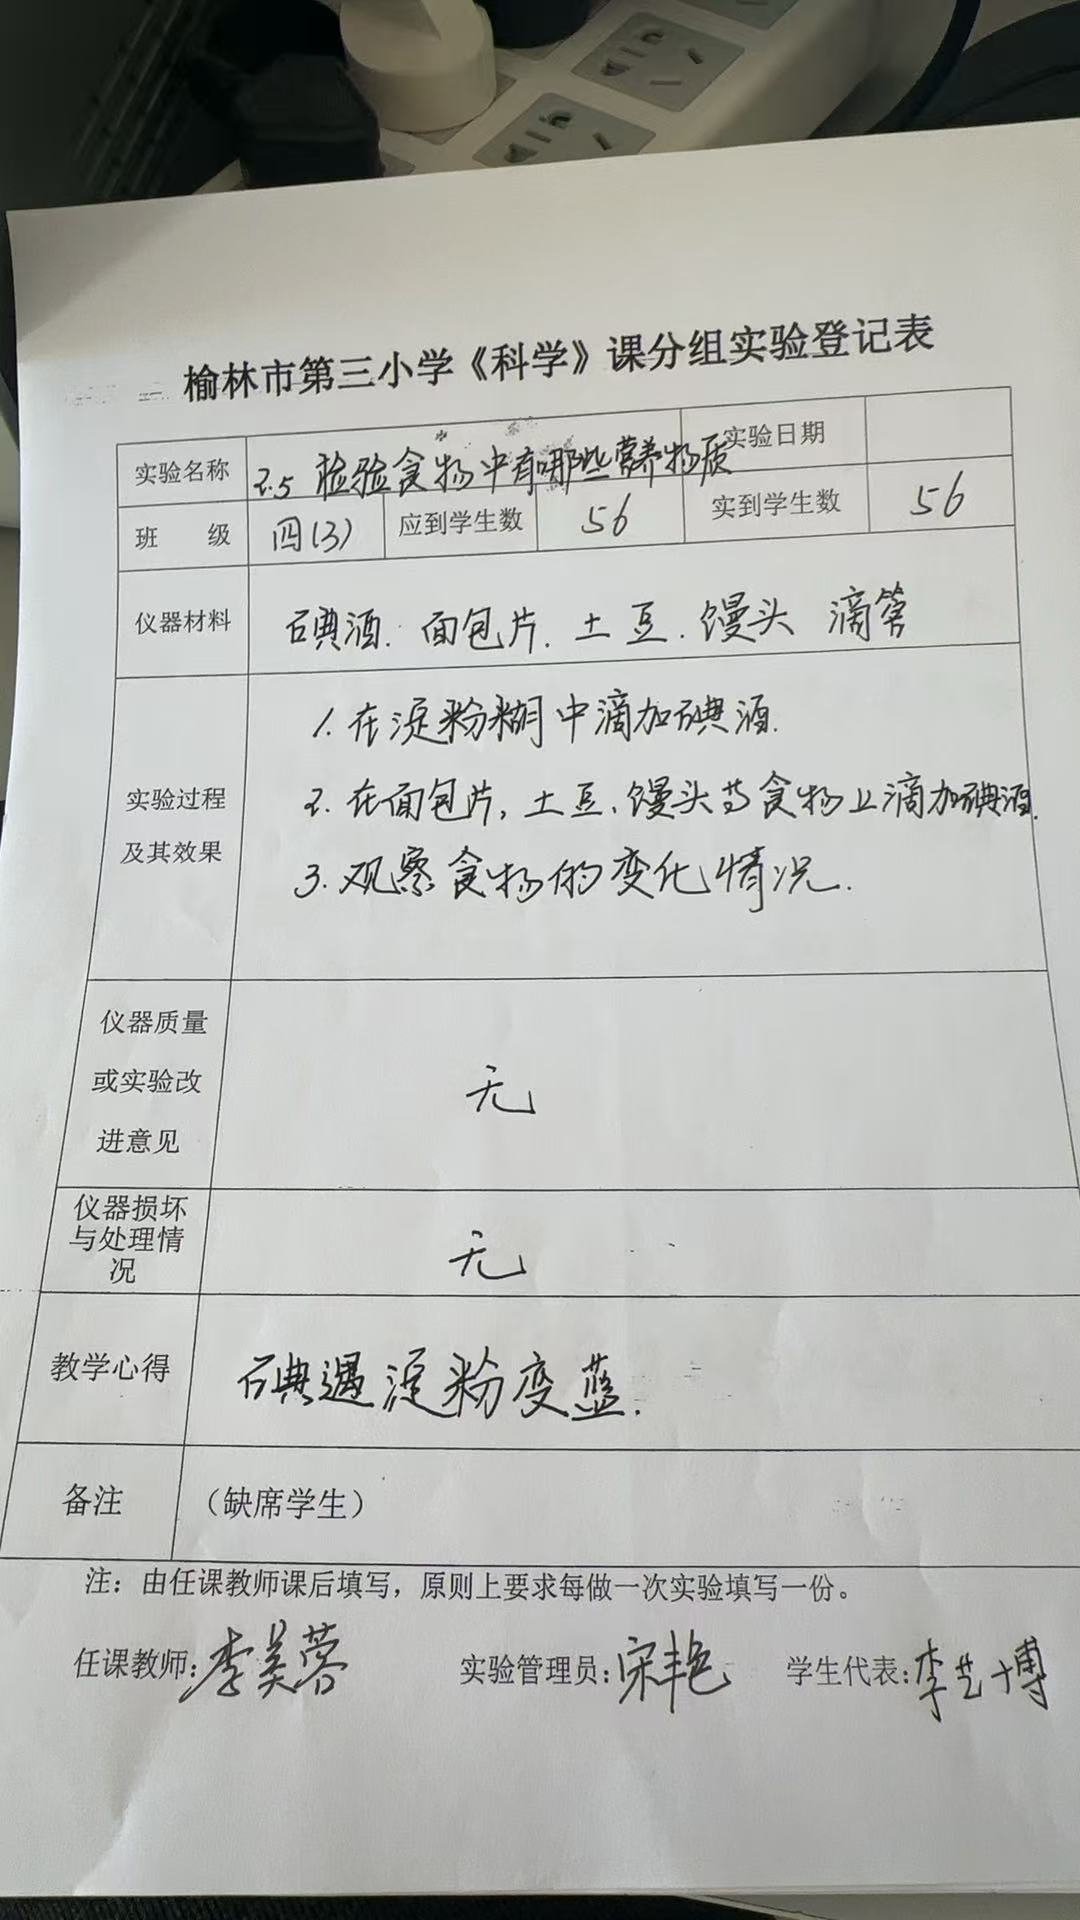 榆林市第三小学《科学》课分组实验登记表
实验名称 2.5 检验食物中有哪些营养物质 实验日期
班 级 四(3) 应到学生数 56 实到学生数 56
仪器材料 碘酒.面包片.土豆.馒头 滴管
1.在淀粉糊中滴加碘酒.
实验过程 2.在面包片,土豆,馒头等食物上滴加碘酒.
及其效果 3.观察食物的变化情况.
仪器质量
或实验改 无
进意见
仪器损坏
与处理情 无
况
教学心得 碘遇淀粉变蓝.
备注 (缺席学生)
注:由任课教师课后填写,原则上要求每做一次实验填写一份。
任课教师:李美蓉 实验管理员:宋艳 学生代表:李艺博